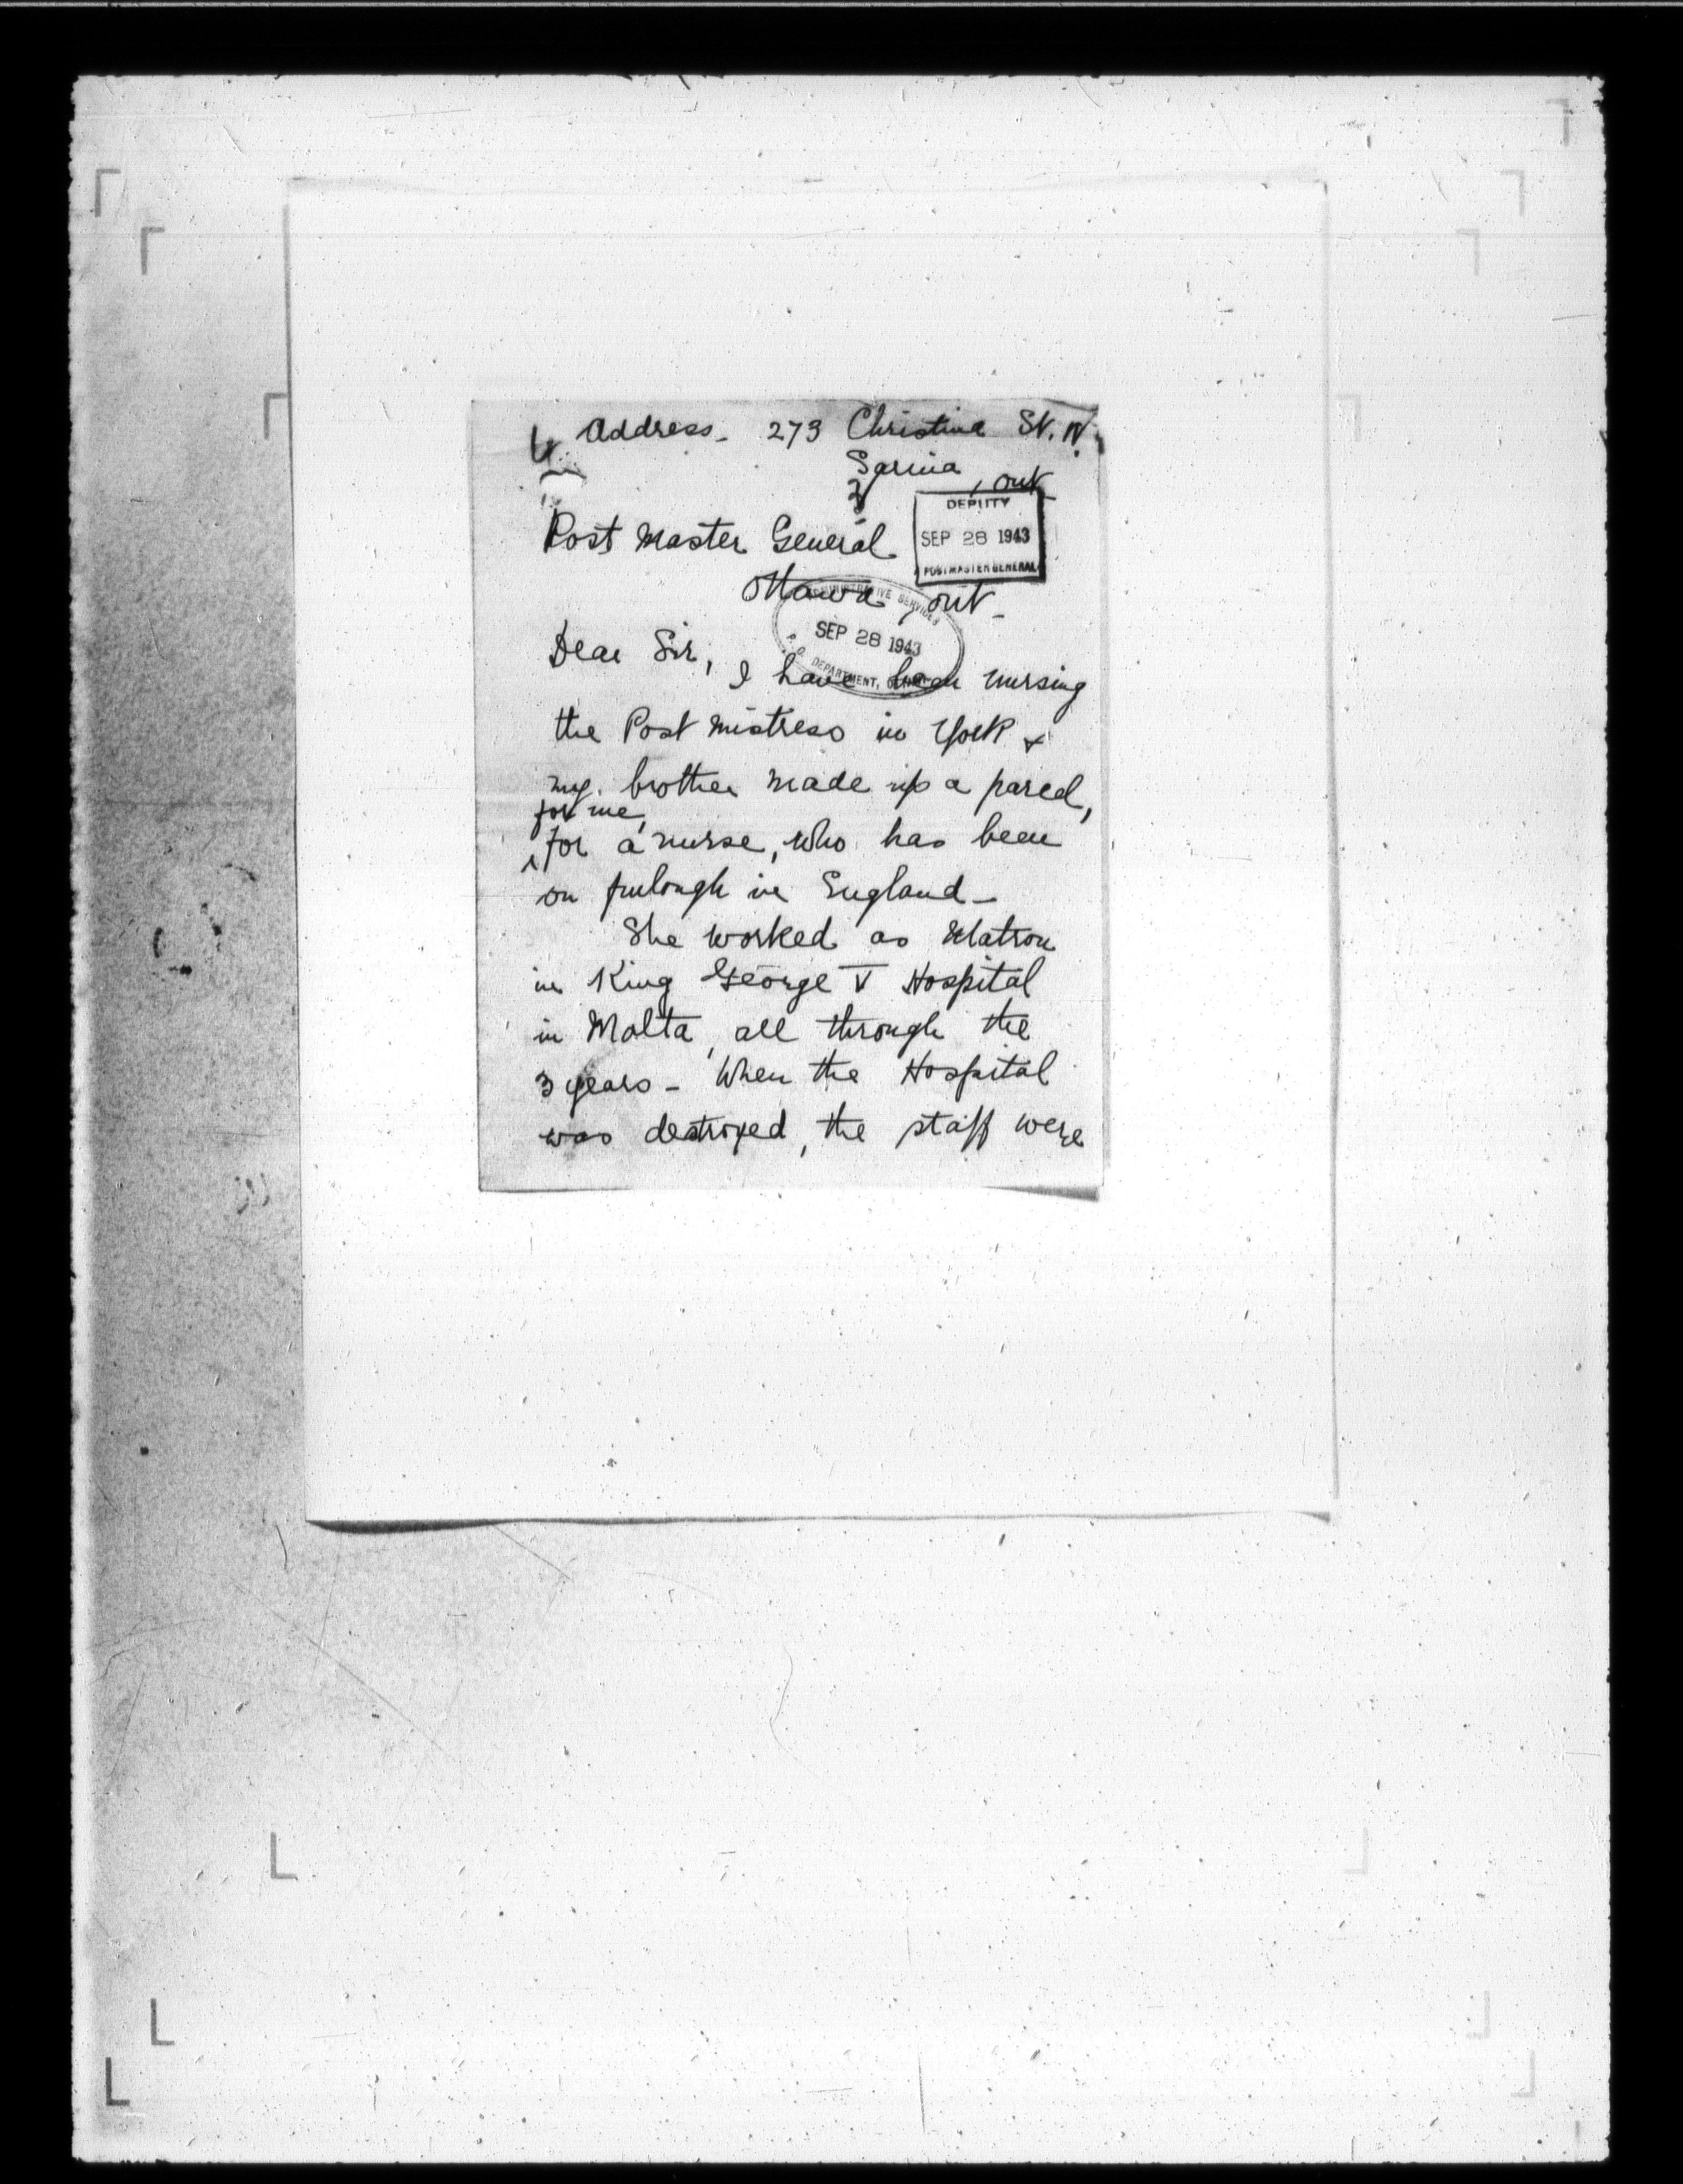 Address - 273 Christina St. N.
Sarnia, Ont
DEPUTY
SEP 28 1943
POSTMASTER GENERAL
Post Master General
Ottawa, Ont -
ADMINISTRATIVE SERVICES
SEP 28 1943
P. O. DEPARTMENT,
Dear Sir,
I have been nursing
the Post Mistress in York &
my brother made up a parcel,
for me,
for a nurse, who has been
on furlough in England -
She worked as Matron
in King George V Hospital
in Malta, all through the
3 years - When the Hospital
was destroyed, the staff were